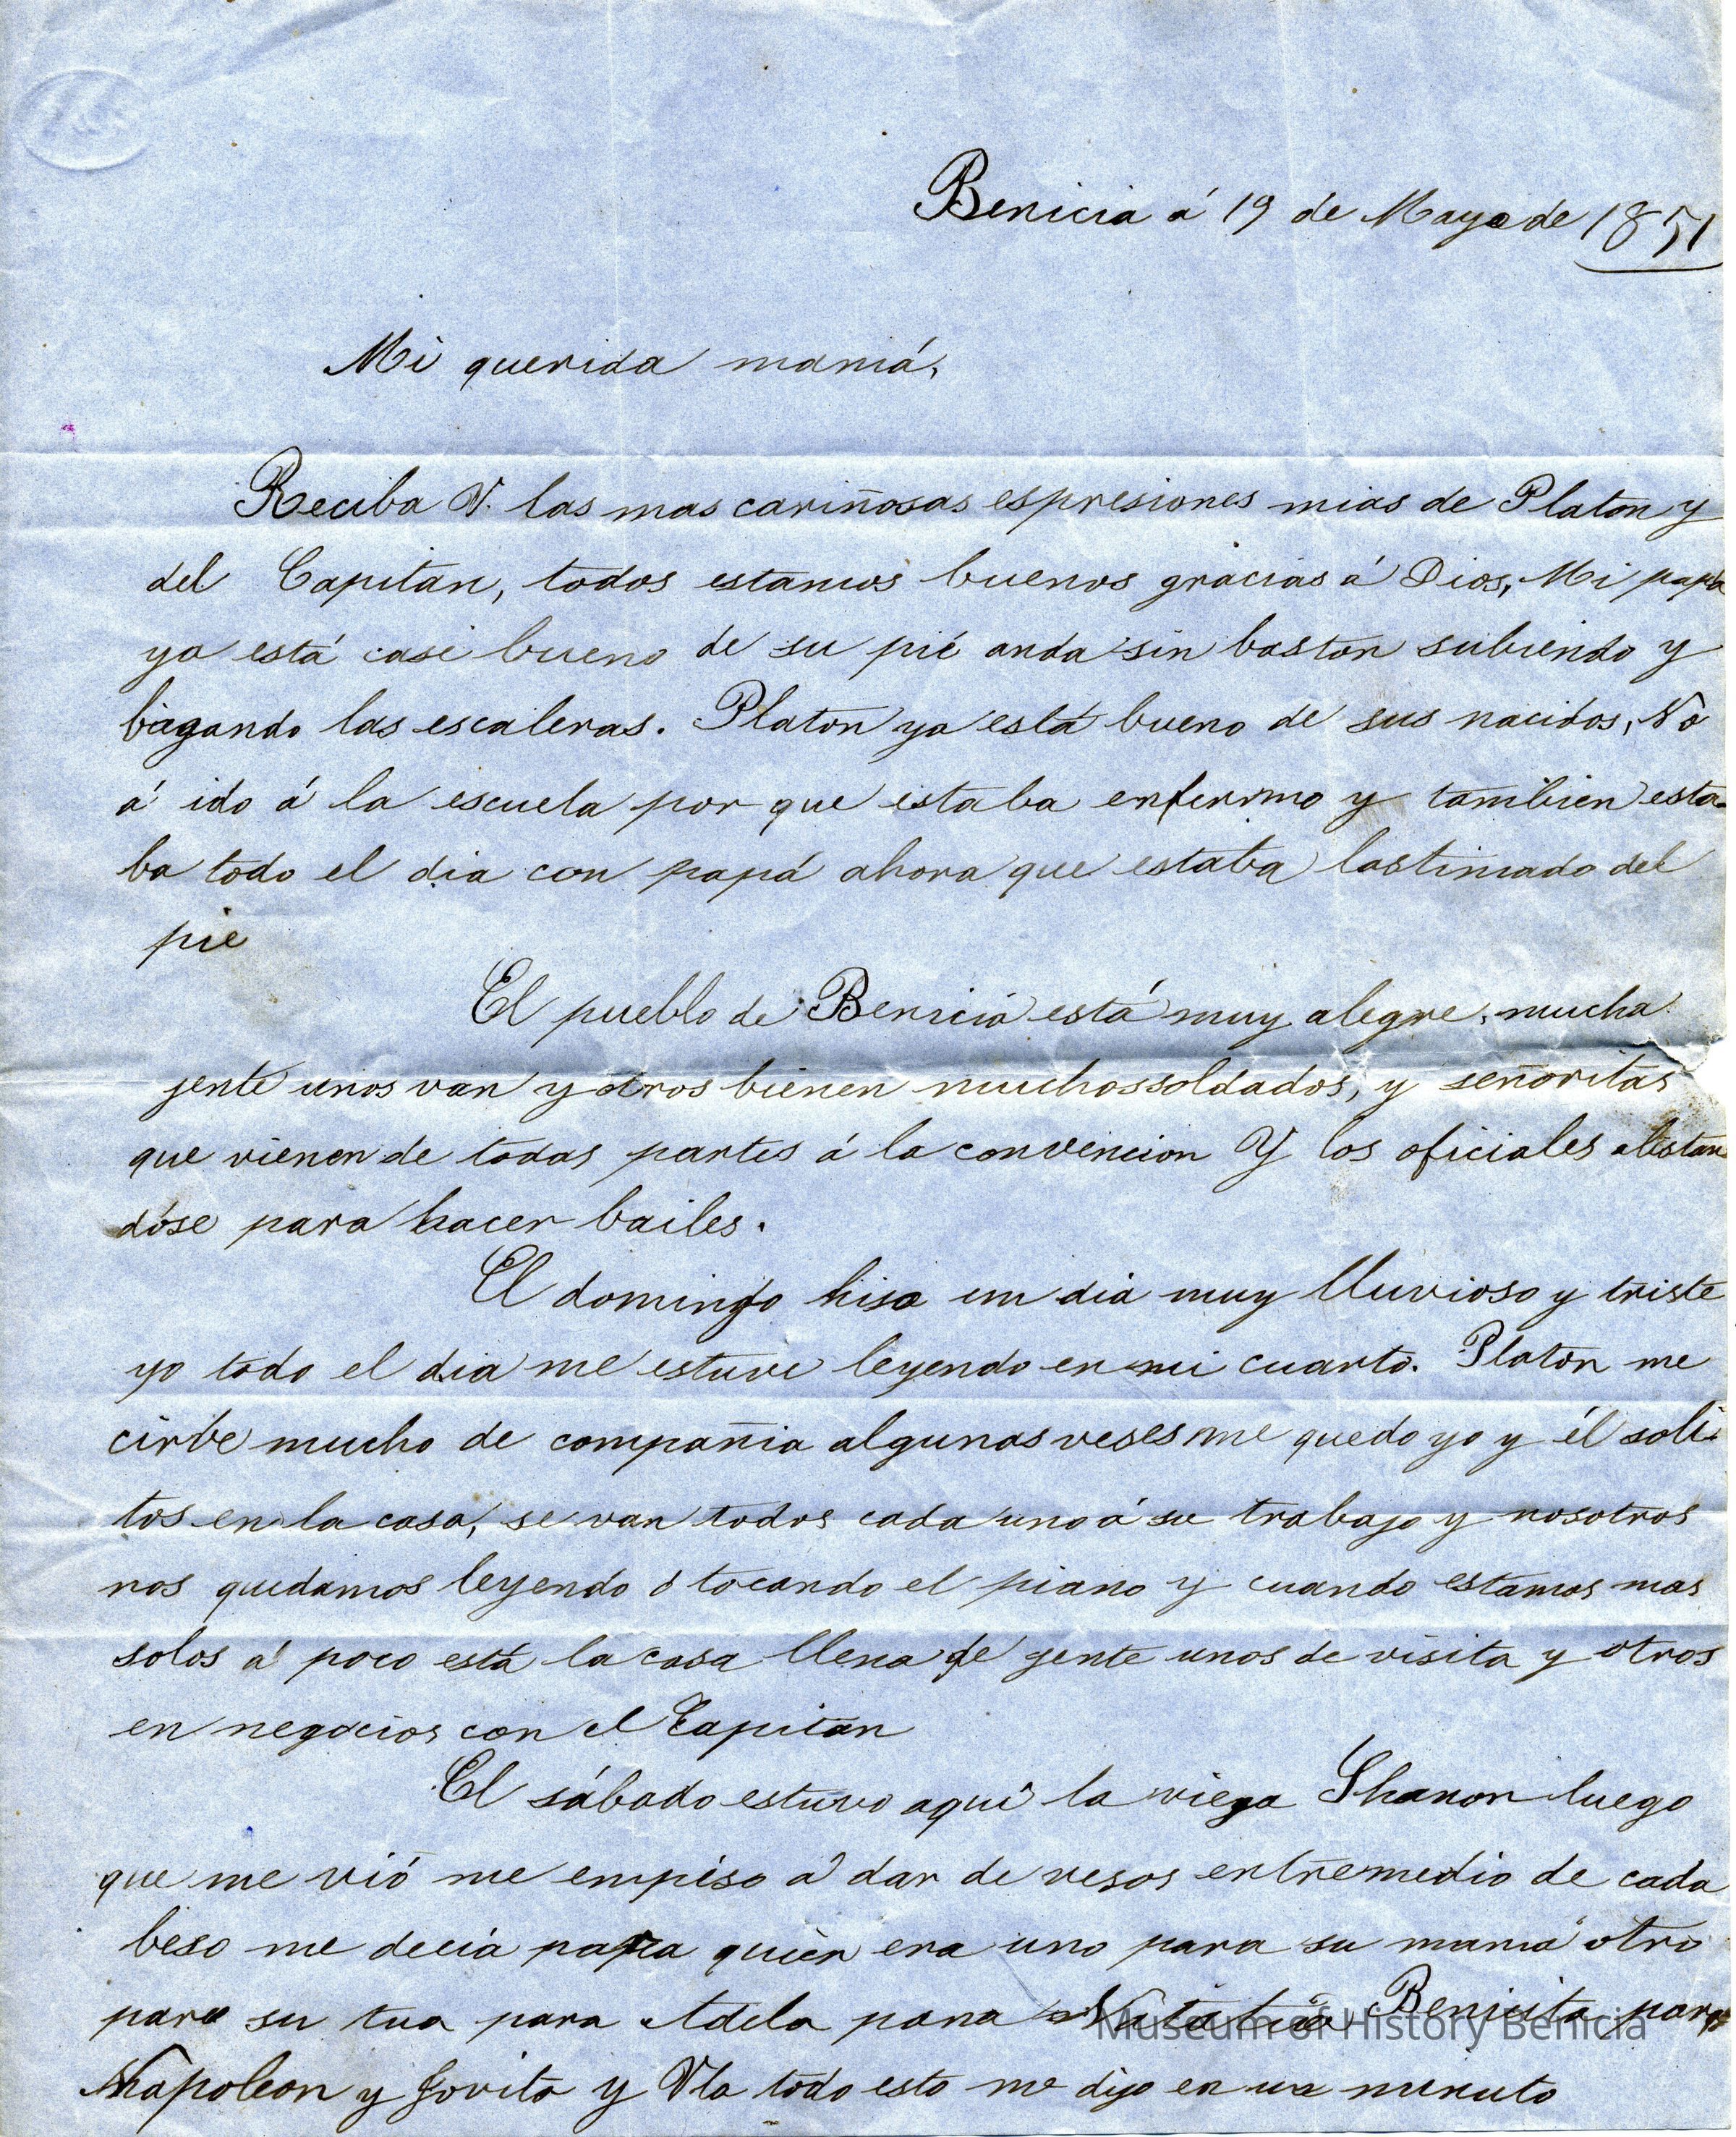 Benicia á 19 de Mayo de 1851
Mi querida mamá,
Reciba V. las mas cariñosas espresiones mias de Platon y
del Capitan, todos estamos buenos gracias á Dios, Mi papa
ya está casi bueno de su pié anda sin baston subiendo y
bagando las escaleras. Platon ya está bueno de sus nacidos, No
á ido á la escuela por que estaba enfermo y tambien esta-
ba todo el dia con papá ahora que estaba lastimado del
pie
El pueblo de Benicia está muy alegre, mucha
jente unos van y otros bienen muchos soldados, y señoritas
que vienen de todas partes á la convencion Y los oficiales alistan
dose para hacer bailes.
El domingo hiso un dia muy lluvioso y triste
yo todo el dia me estuve leyendo en mi cuarto. Platon me
cirbe mucho de compañia algunas veses me quedo yo y él soli-
tos en la casa, se van todos cada uno á su trabajo y nosotros
nos quedamos leyendo ó tocando el piano y cuando estamos mas
solos á poco está la casa llena de jente unos de visita y otros
en negocios con el Capitan
El sábado estuvo aquí la viega Shanon luego
que me vió me empiso á dar de vesos entremedio de cada
beso me decia papa quien era uno para su mamá otro
para su tua para Adela para Natalia Benicita para
Napoleon y Jovita y Ula todo esto me dijo en un minuto
Museum of History Benicia